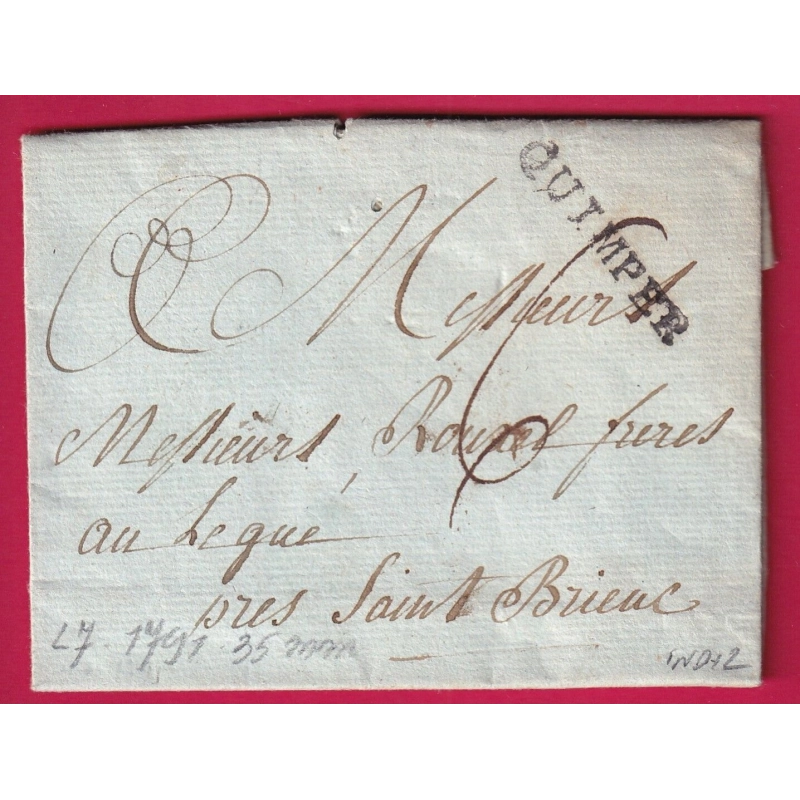 QUIMPER
A Messieurs
6
Messieurs, Rouxel freres
au Legué
pres Saint Brieuc
L7 - 1791 35 mm
IND 12